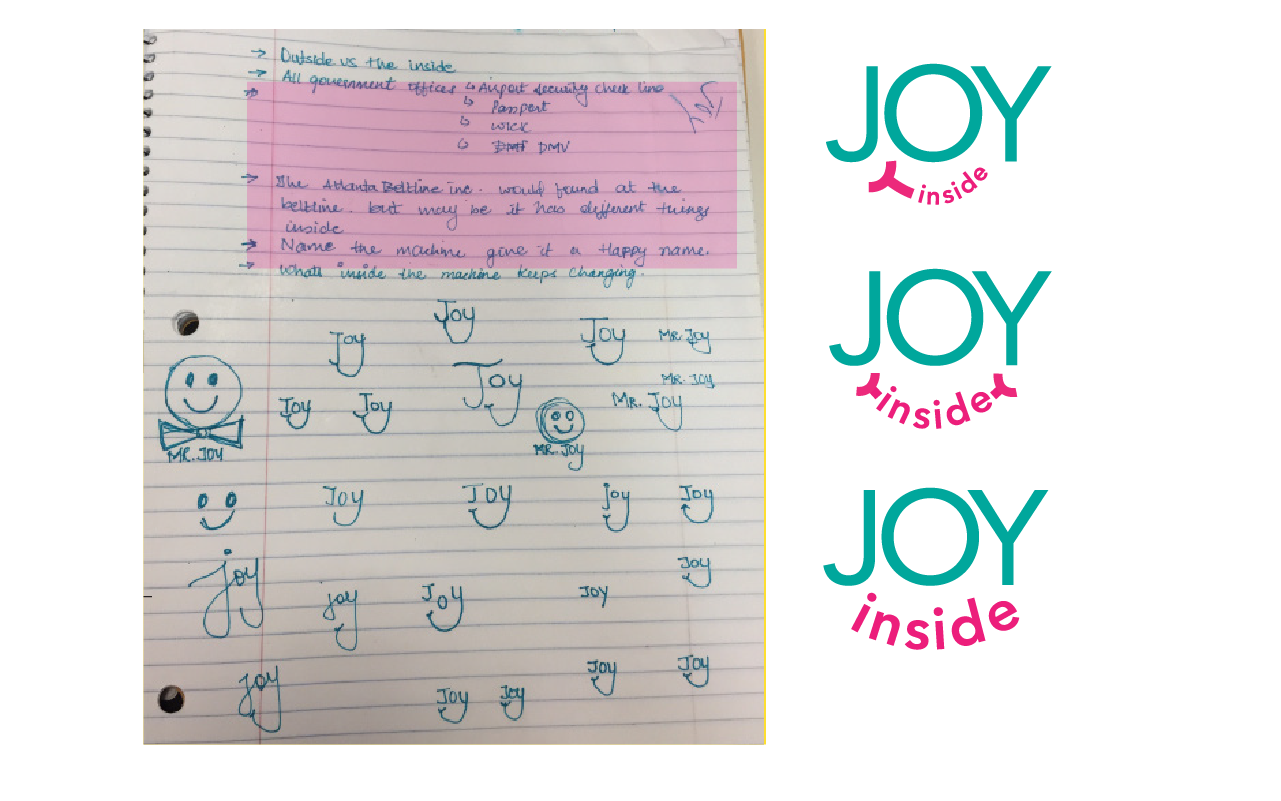 → Outside vs the inside
→ All government offices ↳ Airport security check line
→
↳ Passport
↳
↳ DMF DMV
→ The Atlanta Beltline inc. would found at the
beltline. but may be it has different things
inside
→ Name the machine give it a Happy name.
→ Whats inside the machine keeps changing.
Joy
Joy
Joy
MR. JOY
Joy
MR. JOY
Joy
Joy
MR. JOY
MR. JOY
MR. JOY
JOY
JOY
joy
Joy
joy
joy
Joy
JOY
Joy
joy
Joy
Joy
Joy
Joy
JOY
inside
JOY
inside
JOY
inside